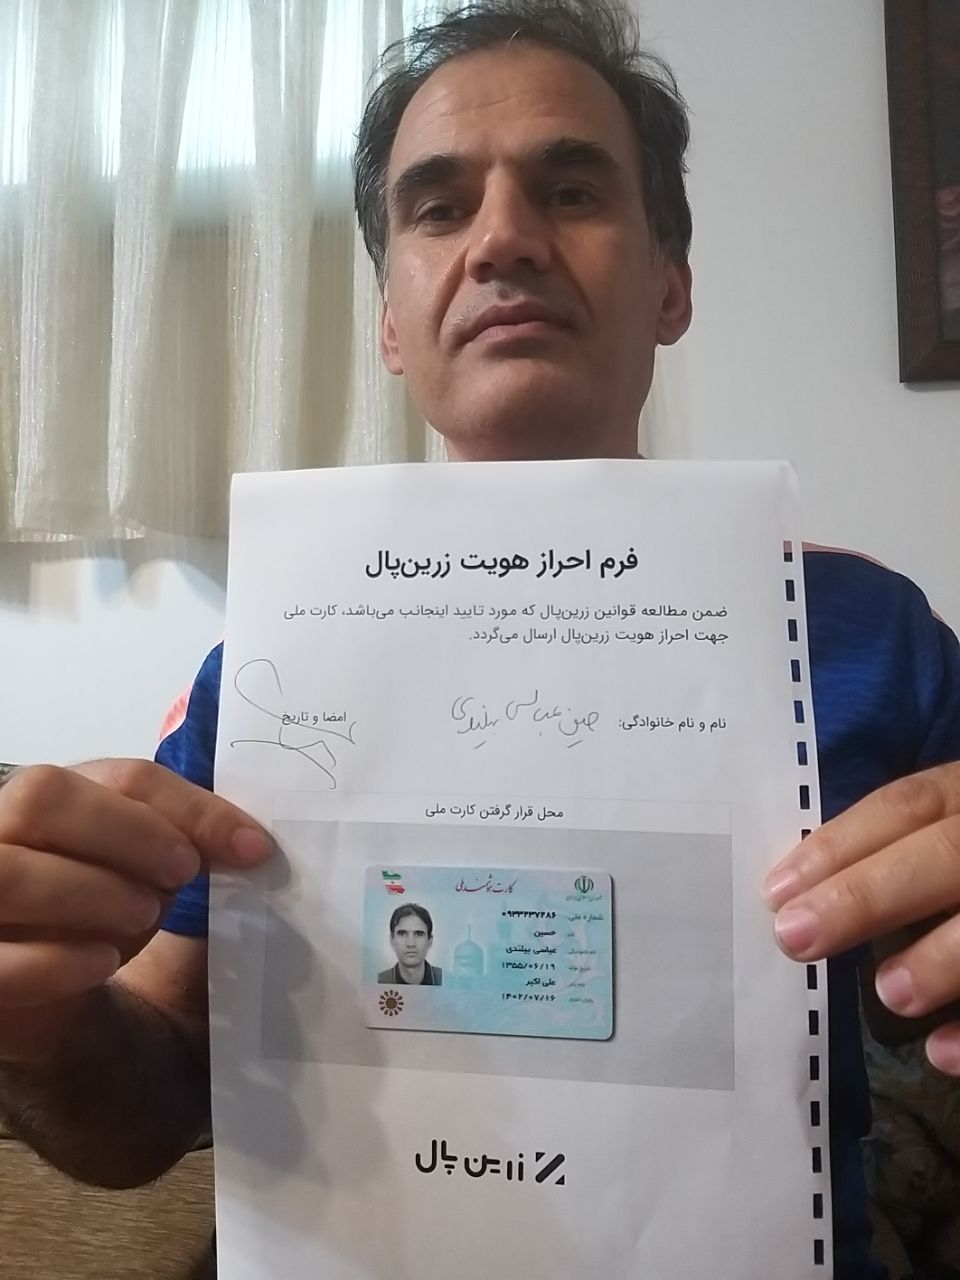 فرم احراز هویت زرین‌پال
ضمن مطالعه قوانین زرین‌پال که مورد تایید اینجانب می‌باشد، کارت ملی
جهت احراز هویت زرین‌پال ارسال می‌گردد.
نام و نام خانوادگی: حسین عباسی بیلندی
امضا و تاریخ
محل قرار گرفتن کارت ملی
کارت هوشمند ملی
شماره ملی: ۰۹۳۳۲۳۷۲۸۶
نام: حسین
نام خانوادگی: عباسی بیلندی
تاریخ تولد: ۱۳۵۵/۰۶/۱۹
نام پدر: علی اکبر
پایان اعتبار: ۱۴۰۲/۰۷/۱۶
زرین پال